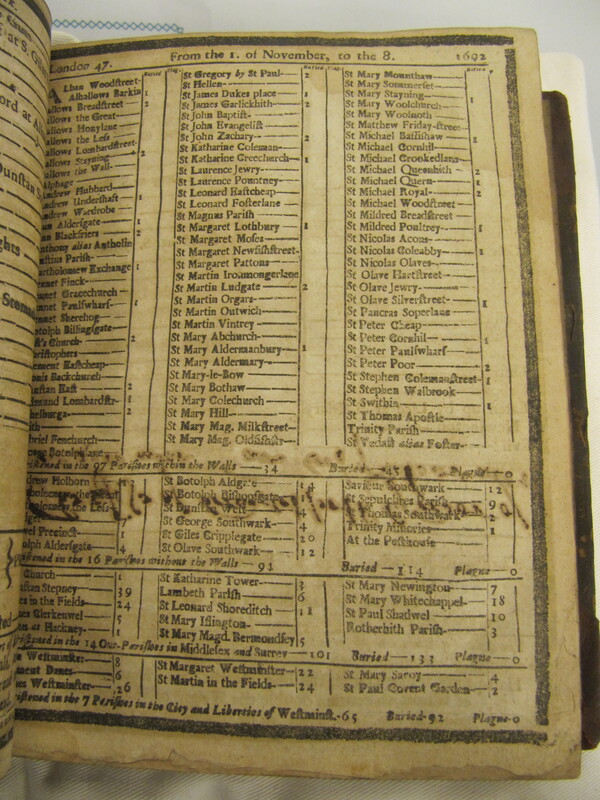 London 47. From the 1. of November, to the 8. 1692
Buried Plag. Buried Plag. Buried P
Alban Woodſtreet- St Gregory by St Paul- 2 St Mary Mounthaw
Alhallows Barkin 1 St Hellen St Mary Sommerſet
allows Breadſtreet- 2 St James Dukes place 1 St Mary Stayning 1
allows the Great- St James Garlickhith 2 St Mary Woolchurch
allows Honylane St John Baptiſt- St Mary Woolnoth
allows the Leſs St John Evangeliſt St Matthew Friday-ſtreet
allows Lombardſtreet- St John Zachary 2 St Michael Baſſiſhaw 1
allows Stayning 2 St Katharine Coleman- St Michael Cornhil
allows the Wall- St Katharine Creechurch 1 St Michael Crookedlane
Alphage St Laurence Jewry- St Michael Queenhith 2
ndrew Hubbard St Laurence Pountney- St Michael Quern 1
ndrew Underſhaft 1 St Leonard Eaſtcheap St Michael Royal 2
ndrew Wardrobe St Leonard Foſterlane St Michael Woodſtreet
Alderſgate 1 St Magnus Pariſh St Mildred Breadſtreet
Blackfriers 2 St Margaret Lothbury 1 St Mildred Poultrey 1
nthony alias Antholin St Margaret Moſes St Nicolas Acons
uſtins Pariſh St Margaret Newfiſhſtreet- St Nicolas Coleabby 1
artholomew Exchange 1 St Margaret Pattons St Nicolas Olaves
ennet Finck St Martin Ironmongerlane St Olave Hartſtreet
ennet Gracechurch St Martin Ludgate 2 St Olave Jewry
ennet Paulſwharf- 1 St Martin Orgars St Olave Silverſtreet 1
ennet Sherehog St Martin Outwich St Pancras Soperlane
otolph Billingſgate St Martin Vintrey St Peter Cheap
's Church 2 St Mary Abchurch St Peter Cornhil 1
riſtophers St Mary Aldermanbury 1 St Peter Paulſwharf
ement Eaſtcheap St Mary Aldermary St Peter Poor 2
nis Backchurch St Mary-le-Bow St Stephen Colemanſtreet 1
unſtan Eaſt 2 St Mary Bothaw St Stephen Walbrook
dmund Lombardſtr- 1 St Mary Colechurch St Swithin 1
helburga 2 St Mary Hill St Thomas Apoſtle
ith St Mary Mag. Milkſtreet Trinity Pariſh
briel Fenchurch St Mary Mag. Oldfiſhſtr St Vedaſt alias Foſter
rge Botolphlane
iſtened in the 97 Pariſhes within the Walls 34 Buried 45 Plague 0
drew Holborn 13 St Botolph Aldgate 14 Saviour Southwark 12
tholomew the Great St Botolph Biſhopſgate St Sepulchres Pariſh 9
tholomew the Leſs St Dunſtan Weſt 4 St Thomas Southwark 2
dget St George Southwark 4 Trinity Minories 1
wel Precinct 1 St Giles Cripplegate 20 At the Peſthouſe
olph Alderſgate 4 St Olave Southwark 12
iſtened in the 16 Pariſhes without the Walls 92 Buried 114 Plague 0
Church 1 St Katharine Tower 3 St Mary Newington 7
nſtan Stepney 39 Lambeth Pariſh 6 St Mary Whitechappel 18
es in the Fields 24 St Leonard Shoreditch 11 St Paul Shadwel 10
mes Clerkenwel 5 St Mary Iſlington Rotherhith Pariſh 3
n at Hackney 1 St Mary Magd. Bermondſey 5
riſtened in the 14 Out-Pariſhes in Middleſex and Surrey 101 Buried 133 Plague 0
Weſtminſter 8 St Margaret Weſtminſter 22 St Mary Savoy 4
ment Danes 6 St Martin in the Fields 24 St Paul Covent Garden 2
es Weſtminſter 26
iſtened in the 7 Pariſhes in the City and Liberties of Weſtminſt. 65 Buried 92 Plague 0